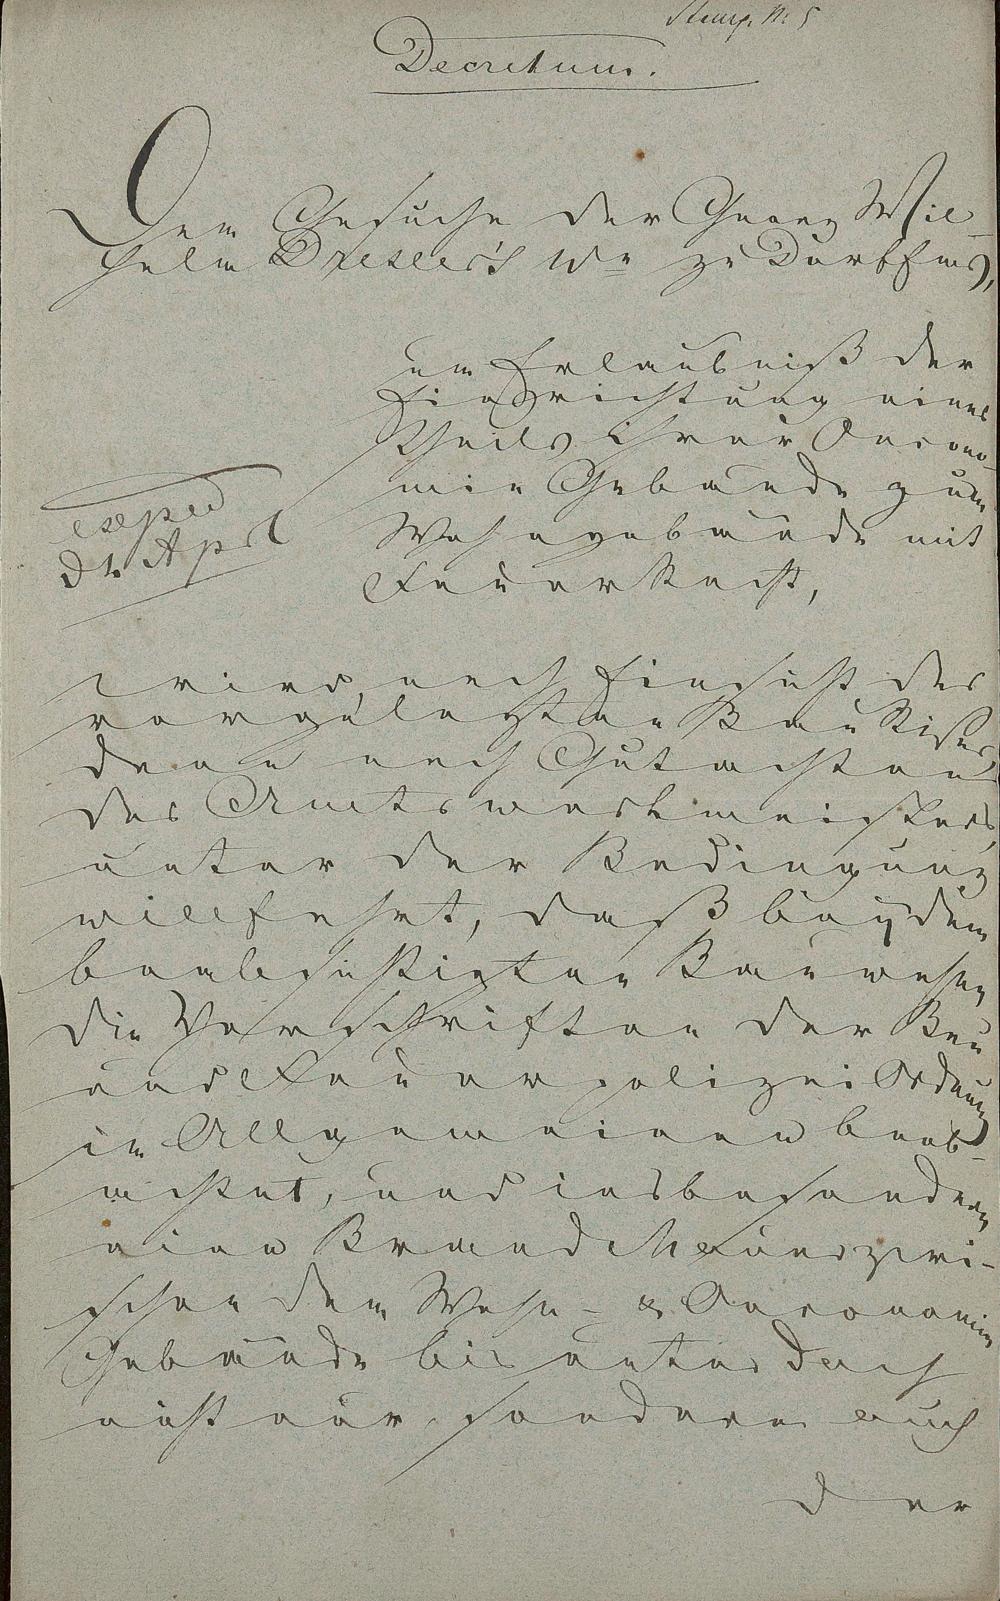 Stemp. N. 5
Decretum.
Dem Gesuche der Georg Wil-
helm Drexler's We zu
um Erlaubniß der
Einrichtung eines
Theils ihrer Oecono-
mie Gebäude zum
Wohngebäude mit
Feuerrecht,
exped
21. Apr
wird, nach Einsicht des
vorgelegten Bau Rißes,
dann nach Gutachten
des Amtswerkmeisters,
unter der Bedingung
willfahrt, daß bey dem
beabsichtigten Bauwesen
die Vorschriften der Bau
und Feuerpolizei Ordnung
im Allgemeinen beob-
achtet, und insbesondere
eine Brand Mauer zwi-
schen dem Wohn- & Oeconomie
Gebäude bis unter Dach
nicht nur, sondern auch
der